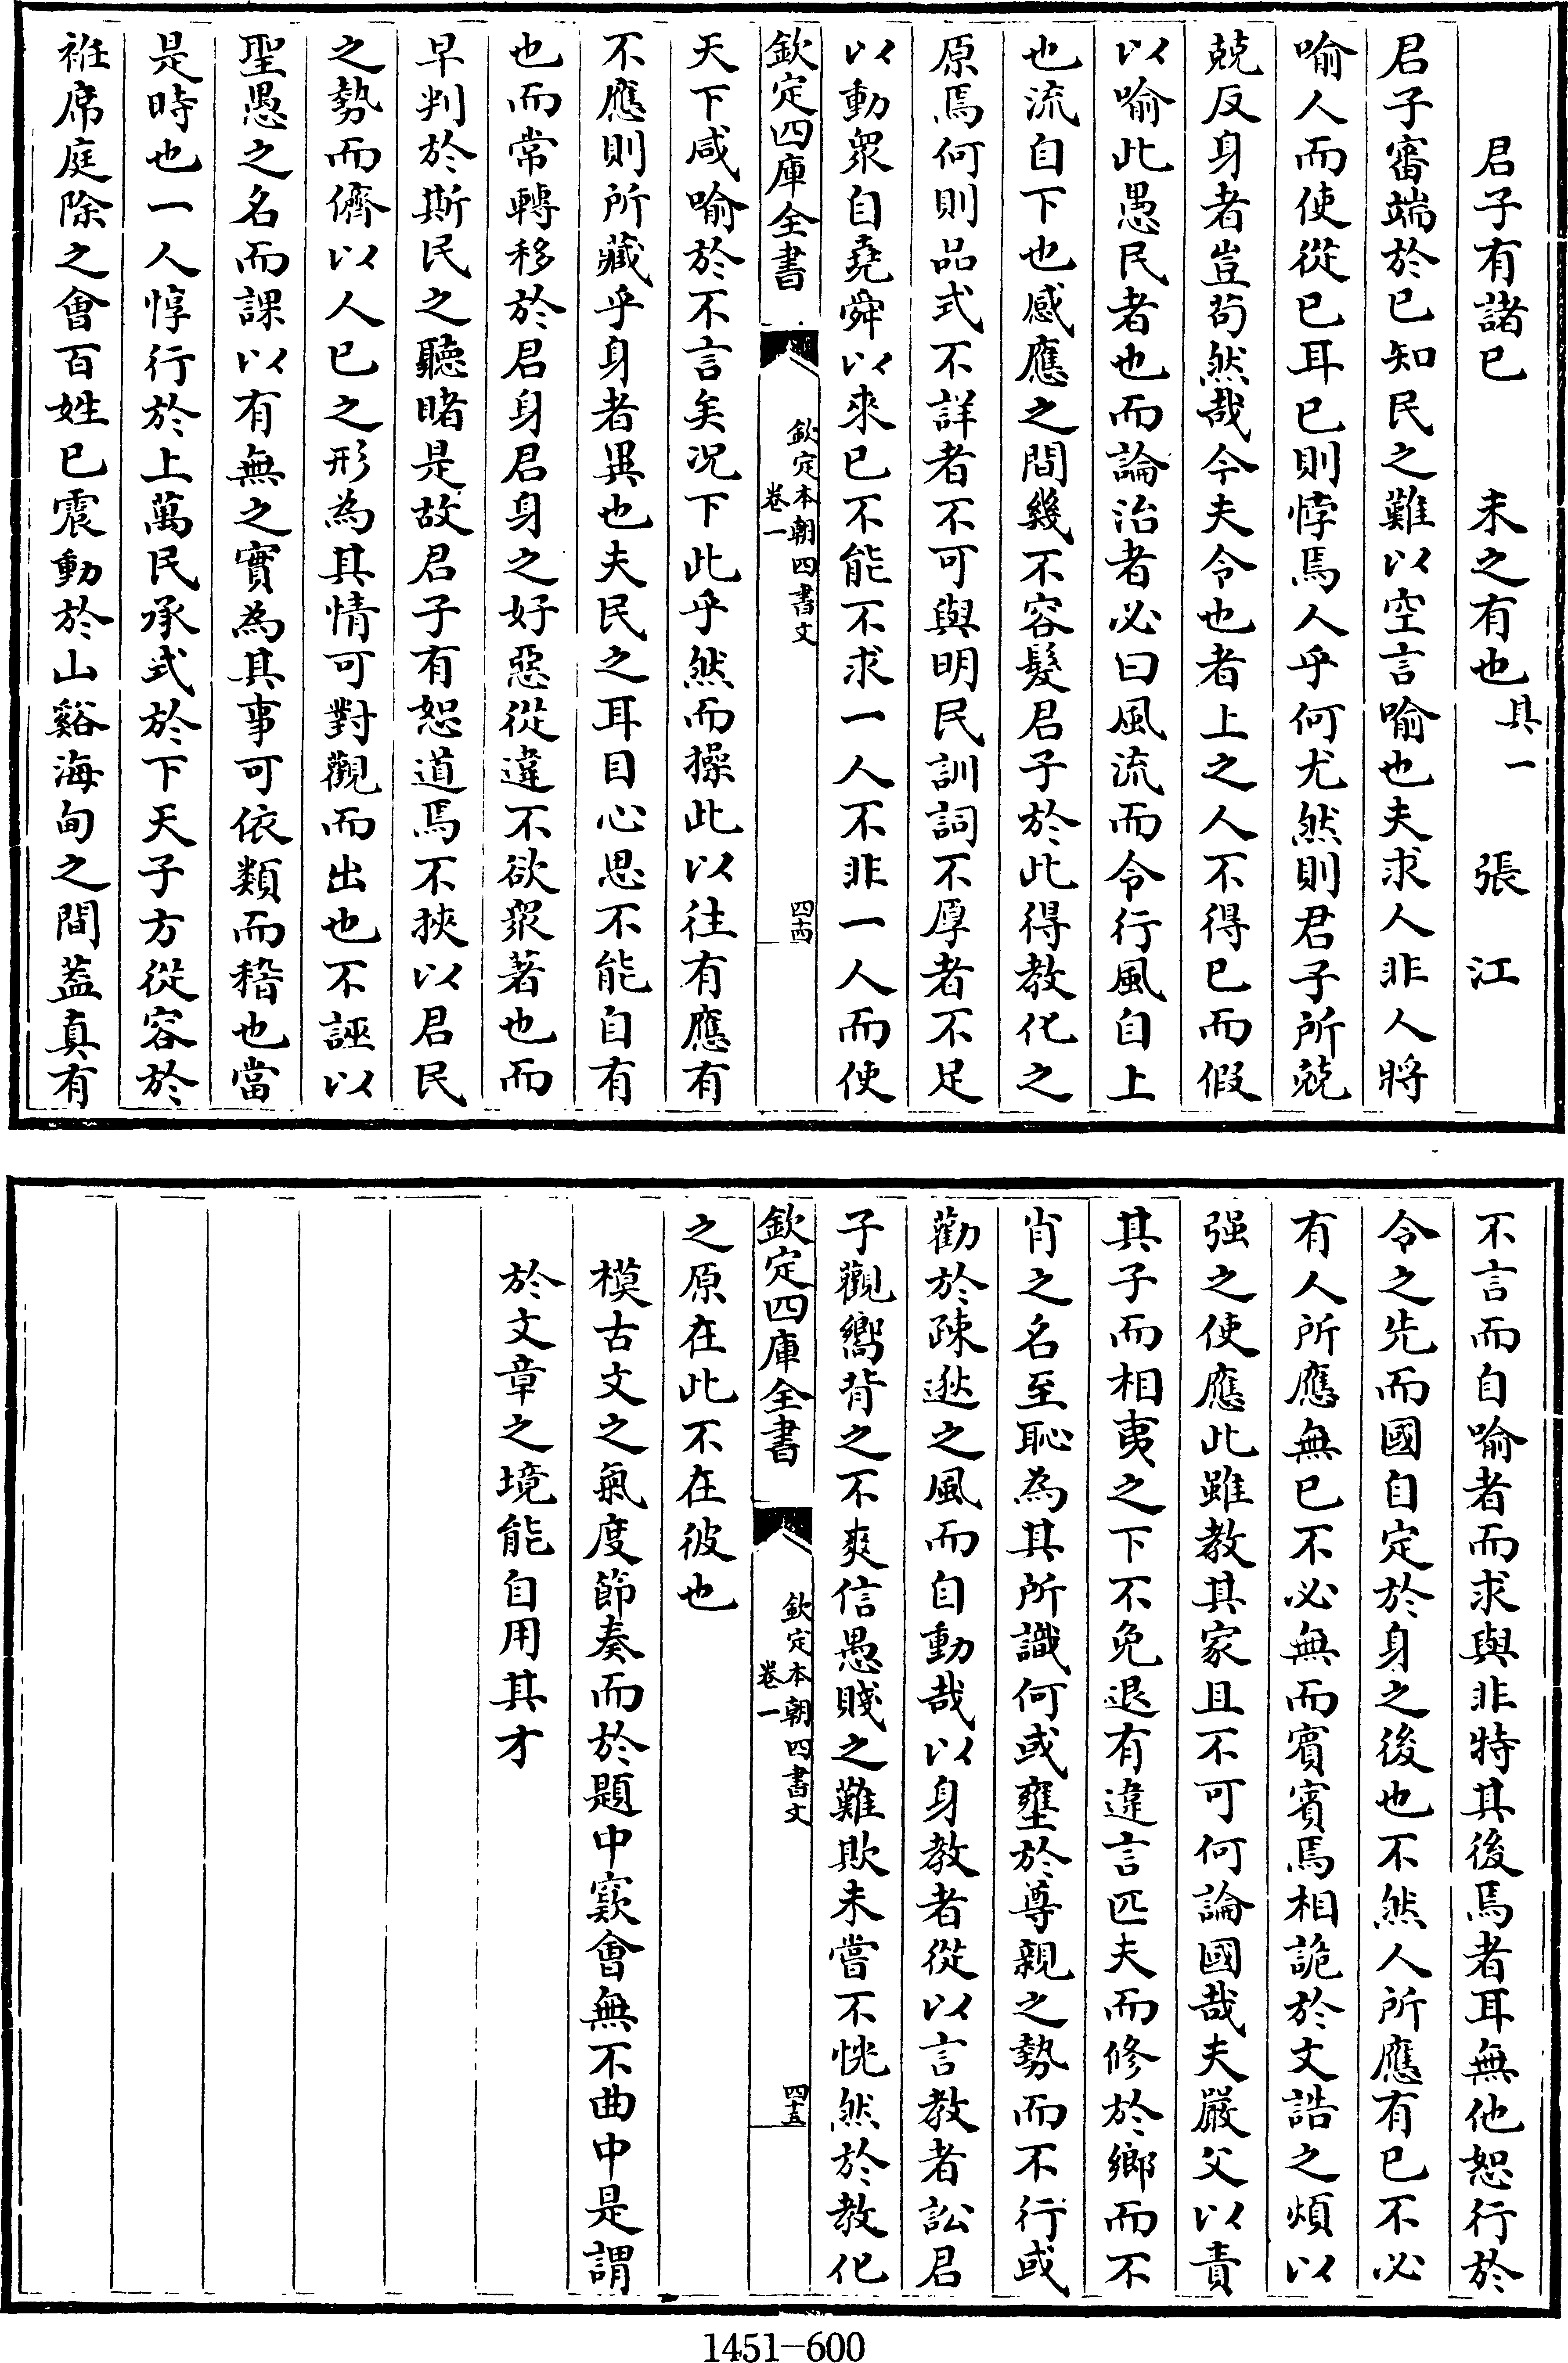 君子有諸已　未之有也 其一　張江
君子審端於已知民之難以空言喻也夫求人非人將
喻人而使從已耳已則悖焉人乎何尤然則君子所兢
兢反身者豈茍然哉今夫令也者上之人不得已而假
以喻此愚民者也而論治者必曰風流而令行風自上
也流自下也感應之間幾不容髮君子於此得教化之
原焉何則品式不詳者不可與明民訓詞不厚者不足
以動衆自堯舜以來已不能不求一人不非一人而使
欽定四庫全書
欽定本朝四書文
卷一
四十四
天下咸喻於不言矣况下此乎然而操此以往有應有
不應則所藏乎身者異也夫民之耳目心思不能自有
也而常轉移於君身君身之好惡從違不欲衆著也而
早判於斯民之聽睹是故君子有恕道焉不挾以君民
之勢而儕以人已之形為其情可對觀而出也不誣以
聖愚之名而課以有無之實為其事可依類而稽也當
是時也一人惇行於上萬民承式於下天子方從容於
袵席庭除之會百姓已震動於山谿海甸之間葢真有
不言而自喻者而求與非特其後焉者耳無他恕行於
令之先而國自定於身之後也不然人所應有已不必
有人所應無已不必無而賓賓焉相詭於文誥之煩以
强之使應此雖教其家且不可何論國哉夫嚴父以責
其子而相夷之下不免退有違言匹夫而修於鄉而不
肖之名至恥為其所識何或壅於尊親之勢而不行或
勸於疎逖之風而自動哉以身教者從以言教者訟君
子觀嚮背之不爽信愚賤之難欺未嘗不恍然於教化
欽定四庫全書
欽定本朝四書文
卷一
四十五
之原在此不在彼也
模古文之氣度節奏而於題中窾會無不曲中是謂
於文章之境能自用其才
1451-600